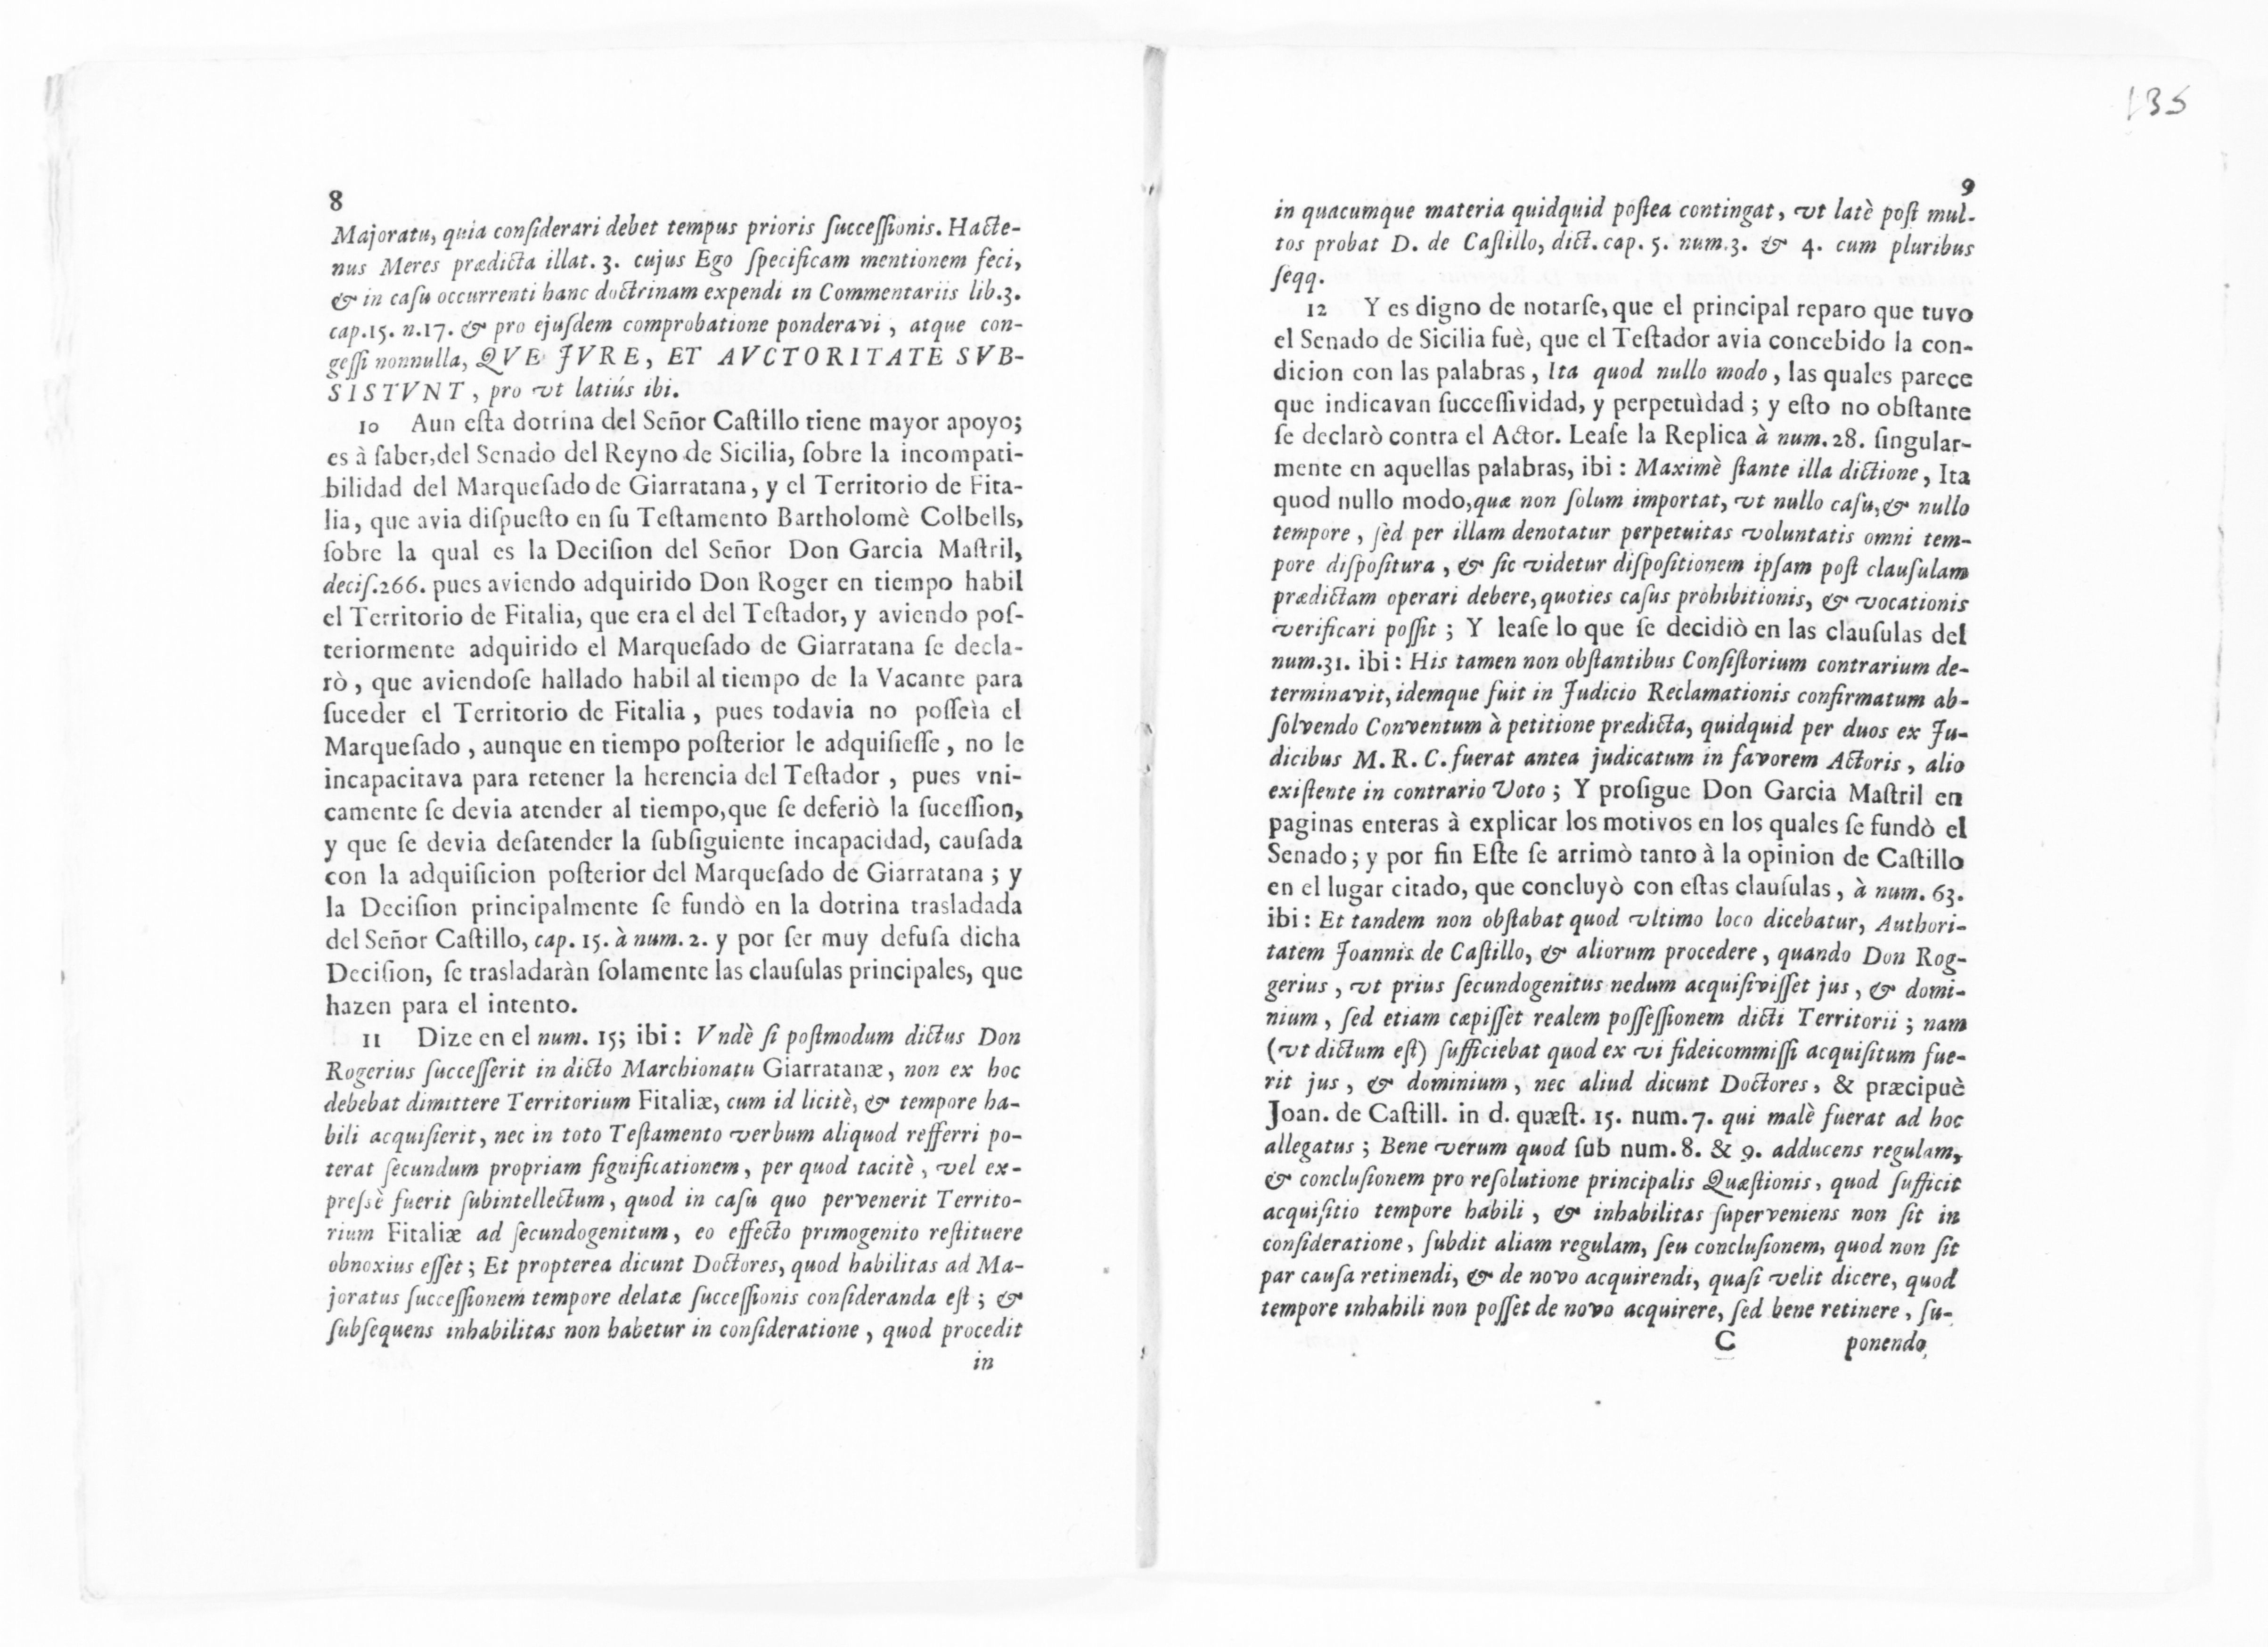 8
Majoratu, quia conſiderari debet tempus prioris ſucceſſionis. Hacte-
nus Meres prædicta illat. 3. cujus Ego ſpecificam mentionem feci,
& in caſu occurrenti hanc doctrinam expendi in Commentariis lib.3.
cap.15. n.17. & pro ejuſdem comprobatione ponderavi, atque con-
geſſi nonnulla, QVE JVRE, ET AVCTORITATE SVB-
SISTVNT, pro vt latiús ibi.
10 Aun eſta dotrina del Señor Caſtillo tiene mayor apoyo;
es à ſaber,del Senado del Reyno de Sicilia, ſobre la incompati-
bilidad del Marqueſado de Giarratana, y el Territorio de Fita-
lia, que avia diſpueſto en ſu Teſtamento Bartholomè Colbells,
ſobre la qual es la Deciſion del Señor Don Garcia Maſtril,
deciſ.266. pues aviendo adquirido Don Roger en tiempo habil
el Territorio de Fitalia, que era el del Teſtador, y aviendo poſ-
teriormente adquirido el Marqueſado de Giarratana ſe decla-
rò, que aviendoſe hallado habil al tiempo de la Vacante para
ſuceder el Territorio de Fitalia, pues todavia no poſſeìa el
Marqueſado, aunque en tiempo poſterior le adquiſieſſe, no le
incapacitava para retener la herencia del Teſtador, pues vni-
camente ſe devia atender al tiempo,que ſe deferiò la ſuceſſion,
y que ſe devia deſatender la ſubſiguiente incapacidad, cauſada
con la adquiſicion poſterior del Marqueſado de Giarratana; y
la Deciſion principalmente ſe fundò en la dotrina trasladada
del Señor Caſtillo, cap. 15. à num. 2. y por ſer muy defuſa dicha
Deciſion, ſe trasladaràn ſolamente las clauſulas principales, que
hazen para el intento.
11 Dize en el num. 15; ibi: Vndè ſi poſtmodum dictus Don
Rogerius ſucceſſerit in dicto Marchionatu Giarratanæ, non ex hoc
debebat dimittere Territorium Fitaliæ, cum id licitè, & tempore ha-
bili acquiſierit, nec in toto Teſtamento verbum aliquod refferri po-
terat ſecundum propriam ſignificationem, per quod tacitè, vel ex-
preſsè fuerit ſubintellectum, quod in caſu quo pervenerit Territo-
rium Fitaliæ ad ſecundogenitum, eo effecto primogenito reſtituere
obnoxius eſſet; Et propterea dicunt Doctores, quod habilitas ad Ma-
joratus ſucceſſionem tempore delatæ ſucceſſionis conſideranda eſt; &
ſubſequens inhabilitas non habetur in conſideratione, quod procedit
in
135
9
in quacumque materia quidquid poſtea contingat, vt latè poſt mul-
tos probat D. de Caſtillo, dict. cap. 5. num.3. & 4. cum pluribus
ſeqq.
12 Y es digno de notarſe, que el principal reparo que tuvo
el Senado de Sicilia fuè, que el Teſtador avia concebido la con-
dicion con las palabras, Ita quod nullo modo, las quales parece
que indicavan ſucceſſividad, y perpetuìdad; y eſto no obſtante
ſe declarò contra el Actor. Leaſe la Replica à num. 28. ſingular-
mente en aquellas palabras, ibi: Maximè ſtante illa dictione, Ita
quod nullo modo,quæ non ſolum importat, vt nullo caſu,& nullo
tempore, ſed per illam denotatur perpetuitas voluntatis omni tem-
pore diſpoſitura, & ſic videtur diſpoſitionem ipſam poſt clauſulam
prædictam operari debere, quoties caſus prohibitionis, & vocationis
verificari poſſit; Y leaſe lo que ſe decidiò en las clauſulas del
num.31. ibi: His tamen non obſtantibus Conſiſtorium contrarium de-
terminavit, idemque fuit in Judicio Reclamationis confirmatum ab-
ſolvendo Conventum à petitione prædicta, quidquid per duos ex Ju-
dicibus M. R. C. fuerat antea judicatum in favorem Actoris, alio
exiſtente in contrario Voto; Y proſigue Don Garcia Maſtril en
paginas enteras à explicar los motivos en los quales ſe fundò el
Senado; y por fin Eſte ſe arrimò tanto à la opinion de Caſtillo
en el lugar citado, que concluyò con eſtas clauſulas, à num. 63.
ibi: Et tandem non obſtabat quod vltimo loco dicebatur, Authori-
tatem Joannis de Caſtillo, & aliorum procedere, quando Don Rog-
gerius, vt prius ſecundogenitus nedum acquiſiviſſet jus, & domi-
nium, ſed etiam cæpiſſet realem poſſeſſionem dicti Territorii; nam
(vt dictum eſt) ſufficiebat quod ex vi fideicommiſſi acquiſitum fue-
rit jus, & dominium, nec aliud dicunt Doctores, & præcipuè
Joan. de Caſtill. in d. quæſt. 15. num. 7. qui malè fuerat ad hoc
allegatus; Bene verum quod ſub num. 8. & 9. adducens regulam,
& concluſionem pro reſolutione principalis Quæſtionis, quod ſufficit
acquiſitio tempore habili, & inhabilitas ſuperveniens non ſit in
conſideratione, ſubdit aliam regulam, ſeu concluſionem, quod non ſit
par cauſa retinendi, & de novo acquirendi, quaſi velit dicere, quod
tempore inhabili non poſſet de novo acquirere, ſed bene retinere, ſu-
C ponendo